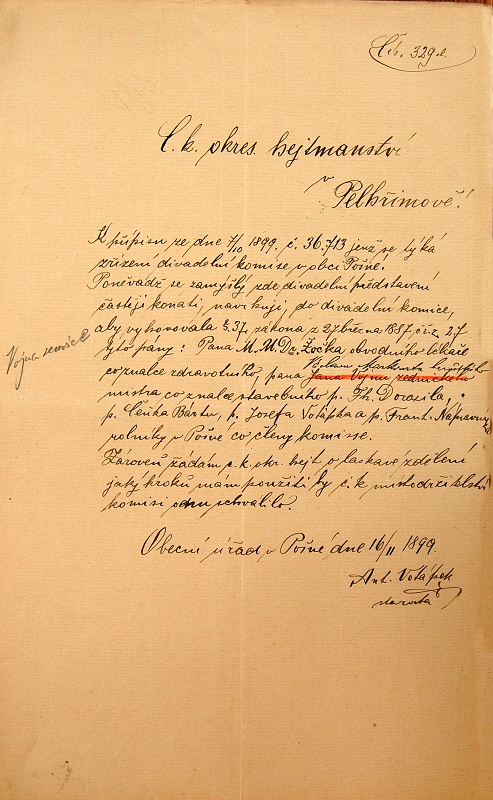 Čís. 329
C. k. okres. hejtmanství
v
Pelhřimově!
K přípisu ze dne 7/10 1899. č. 36.713 jenž se týká
zřízení divadelní komise v obci Pošné.
Poněvadž se zamýšlý zde divadelní představení
častěji konati, navrhuji, do divadelní komice,
aby vyhovovala §.37. zákona z 27 března 1887. čís. 27
tyto pány: Pana M.M.Dr. Žočka, obvodního lékaře
co znalce zdravotního, pana
Jana Vojnu zednického
Vojna zemřel
mistra co znalce stavebního p. Th. Dorazila,
p. Čeňka Bártu, p. Josefa Votápka a p. Frant. Nápravu,
rolníky v Pošné co členy komisse.
Zároveň žádám c. k. okr. hejt. o laskavé zdělení
jaký kroků mám použíti by c. k. místodržitelství
komisi schvalilo.
Obecní úřad v Pošné dne 16/11 1899.
Ant. Votápek
starosta